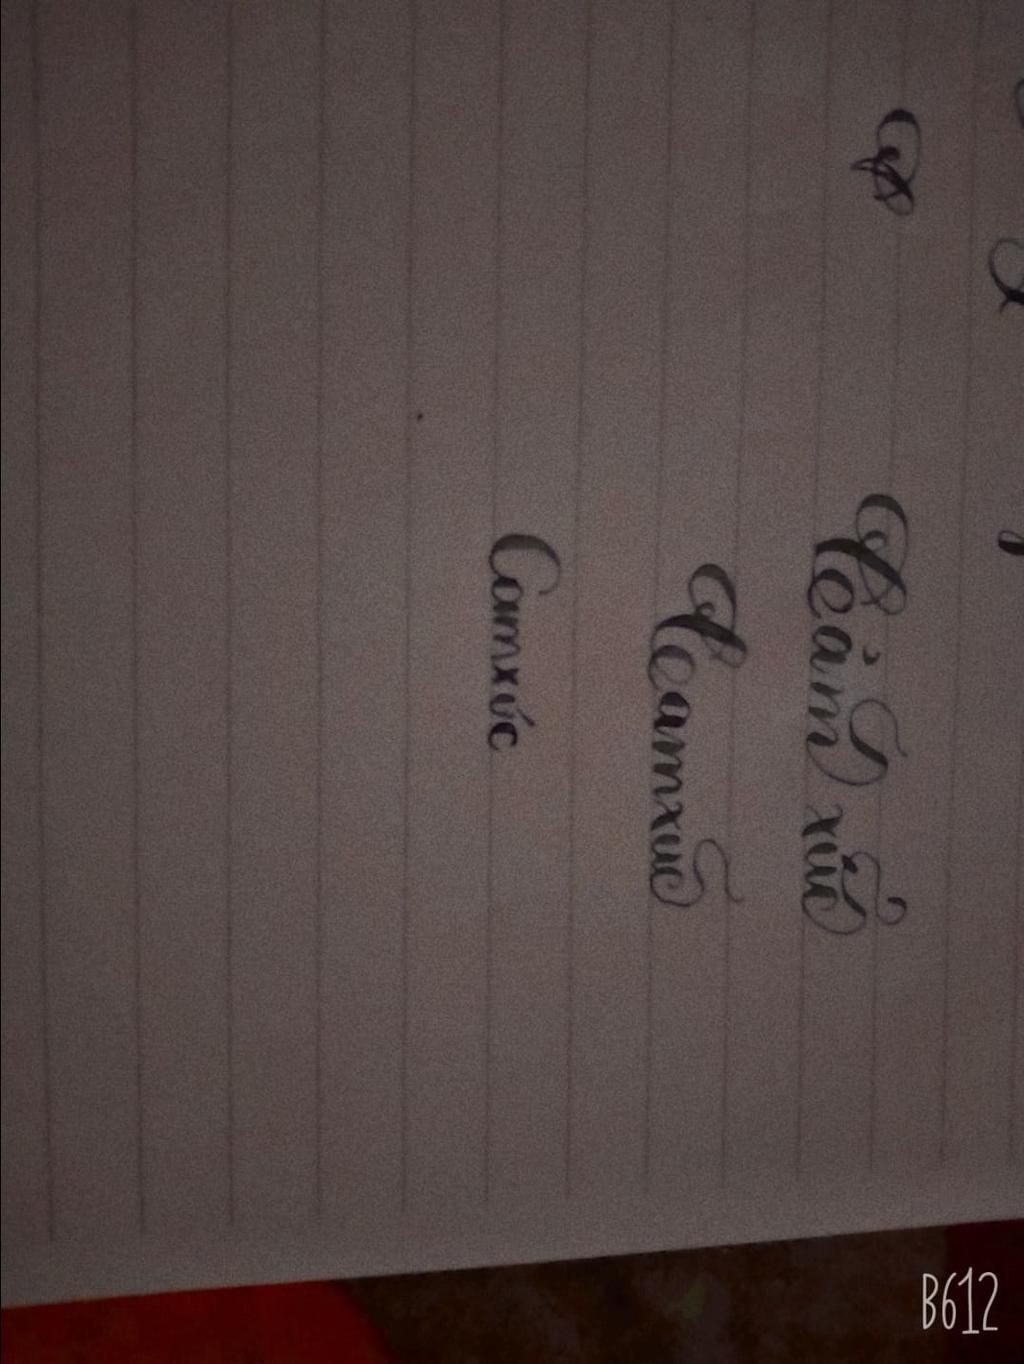 Cảm xúc
Camxuc
Camxúc
B612